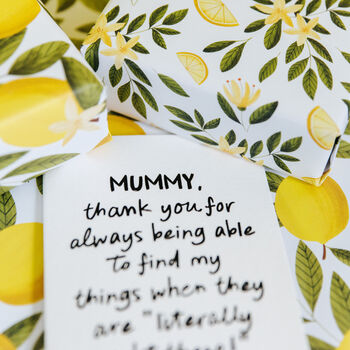 MUMMY,
thank you for
always being able
to find my
things when they
are "literally